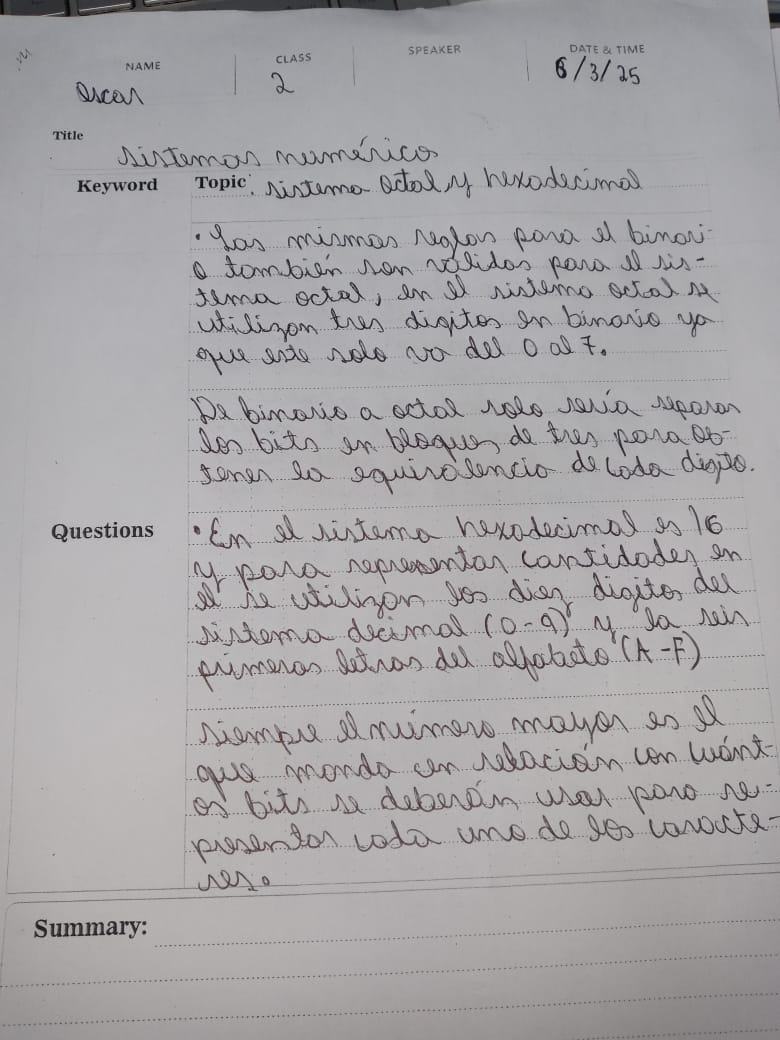 NAME CLASS SPEAKER DATE & TIME
Oscar 2 6/3/25
Title
sistemas numérico
Keyword Topic: sistema Octal y hexadecimal
• Las mismas reglas para el binari-
o también son válidas para el sis-
tema octal, en el sistema octal se
utilizan tres digitos en binario ya
que este solo va del 0 al 7.
De binario a octal solo sería separar
los bits en bloques de tres para ob-
tener la equivalencia de cada digito.
Questions • En el sistema hexadecimal es 16
y para representar cantidades en
el se utilizan los diez digitos del
sistema decimal (0-9) y la seis
primeras letras del alfabeto (A-F)
siempre el número mayor es el
que manda en relación con cuánt-
os bits se deberán usar para re-
presentar cada uno de los caracte-
res.
Summary: